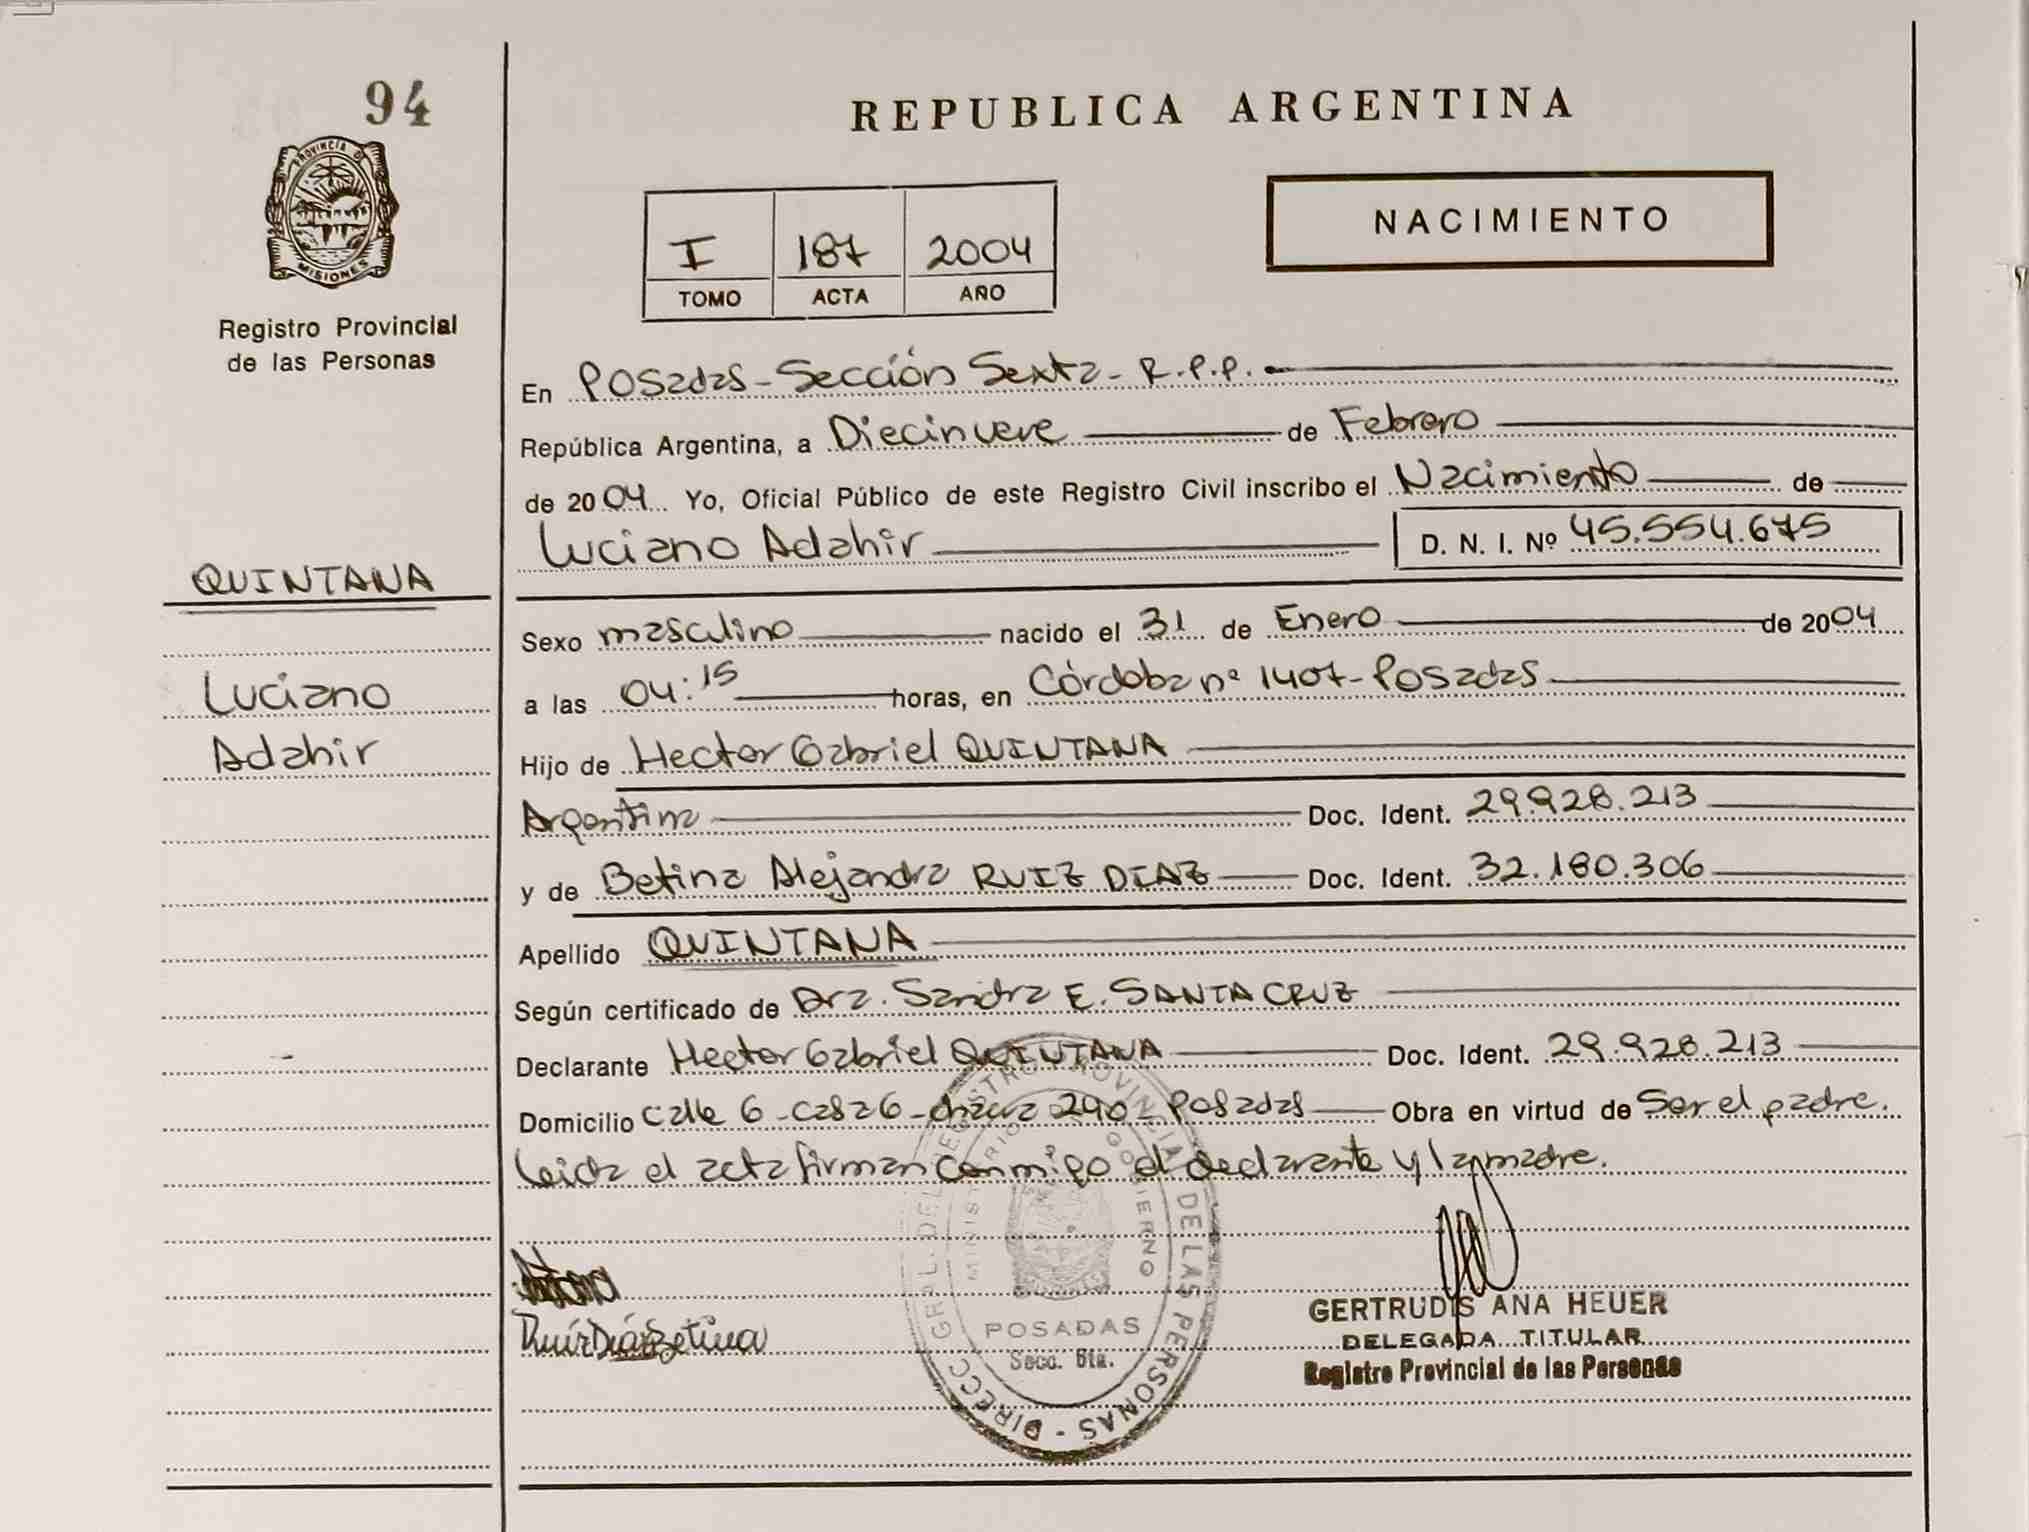 94
PROVINCIA DE
MISIONES
Registro Provincial
de las Personas
REPUBLICA ARGENTINA
NACIMIENTO
I 187 2004
TOMO ACTA AÑO
En Posadas - Sección Sexta - R.P.P.
República Argentina, a Diecinueve de Febrero
de 2004 Yo, Oficial Público de este Registro Civil inscribo el Nacimiento de
Luciano Adahir D. N. I. Nº 45.554.675
QUINTANA
Luciano
Adahir
Sexo masculino nacido el 31 de Enero de 2004
a las 04:15 horas, en Córdoba nº 1407 - Posadas
Hijo de Hector Gabriel QUINTANA
Argentina Doc. Ident. 29.928.213
y de Betina Alejandra RUIZ DIAZ Doc. Ident. 32.180.306
Apellido QUINTANA
Según certificado de Dra. Sandra E. SANTA CRUZ
Declarante Hector Gabriel QUINTANA Doc. Ident. 29.928.213
Domicilio Calle 6 - casa 6 - chacra 290 - Posadas Obra en virtud de Ser el padre.
Leida el acta firman conmigo el declarante y la madre.
Ruíz Díaz Betina
DIRECC. GRAL. DEL REGISTRO PROVINCIAL DE LAS PERSONAS
MINISTERIO GOBIERNO
POSADAS
Secc. 6ta.
GERTRUDIS ANA HEUER
DELEGADA TITULAR
Registro Provincial de las Personas